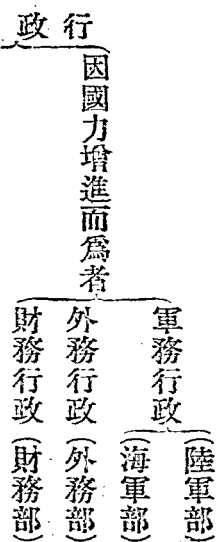 行政
因國力增進而爲者
軍務行政
(陸軍部)
(海軍部)
外務行政(外務部)
財務行政(財務部)